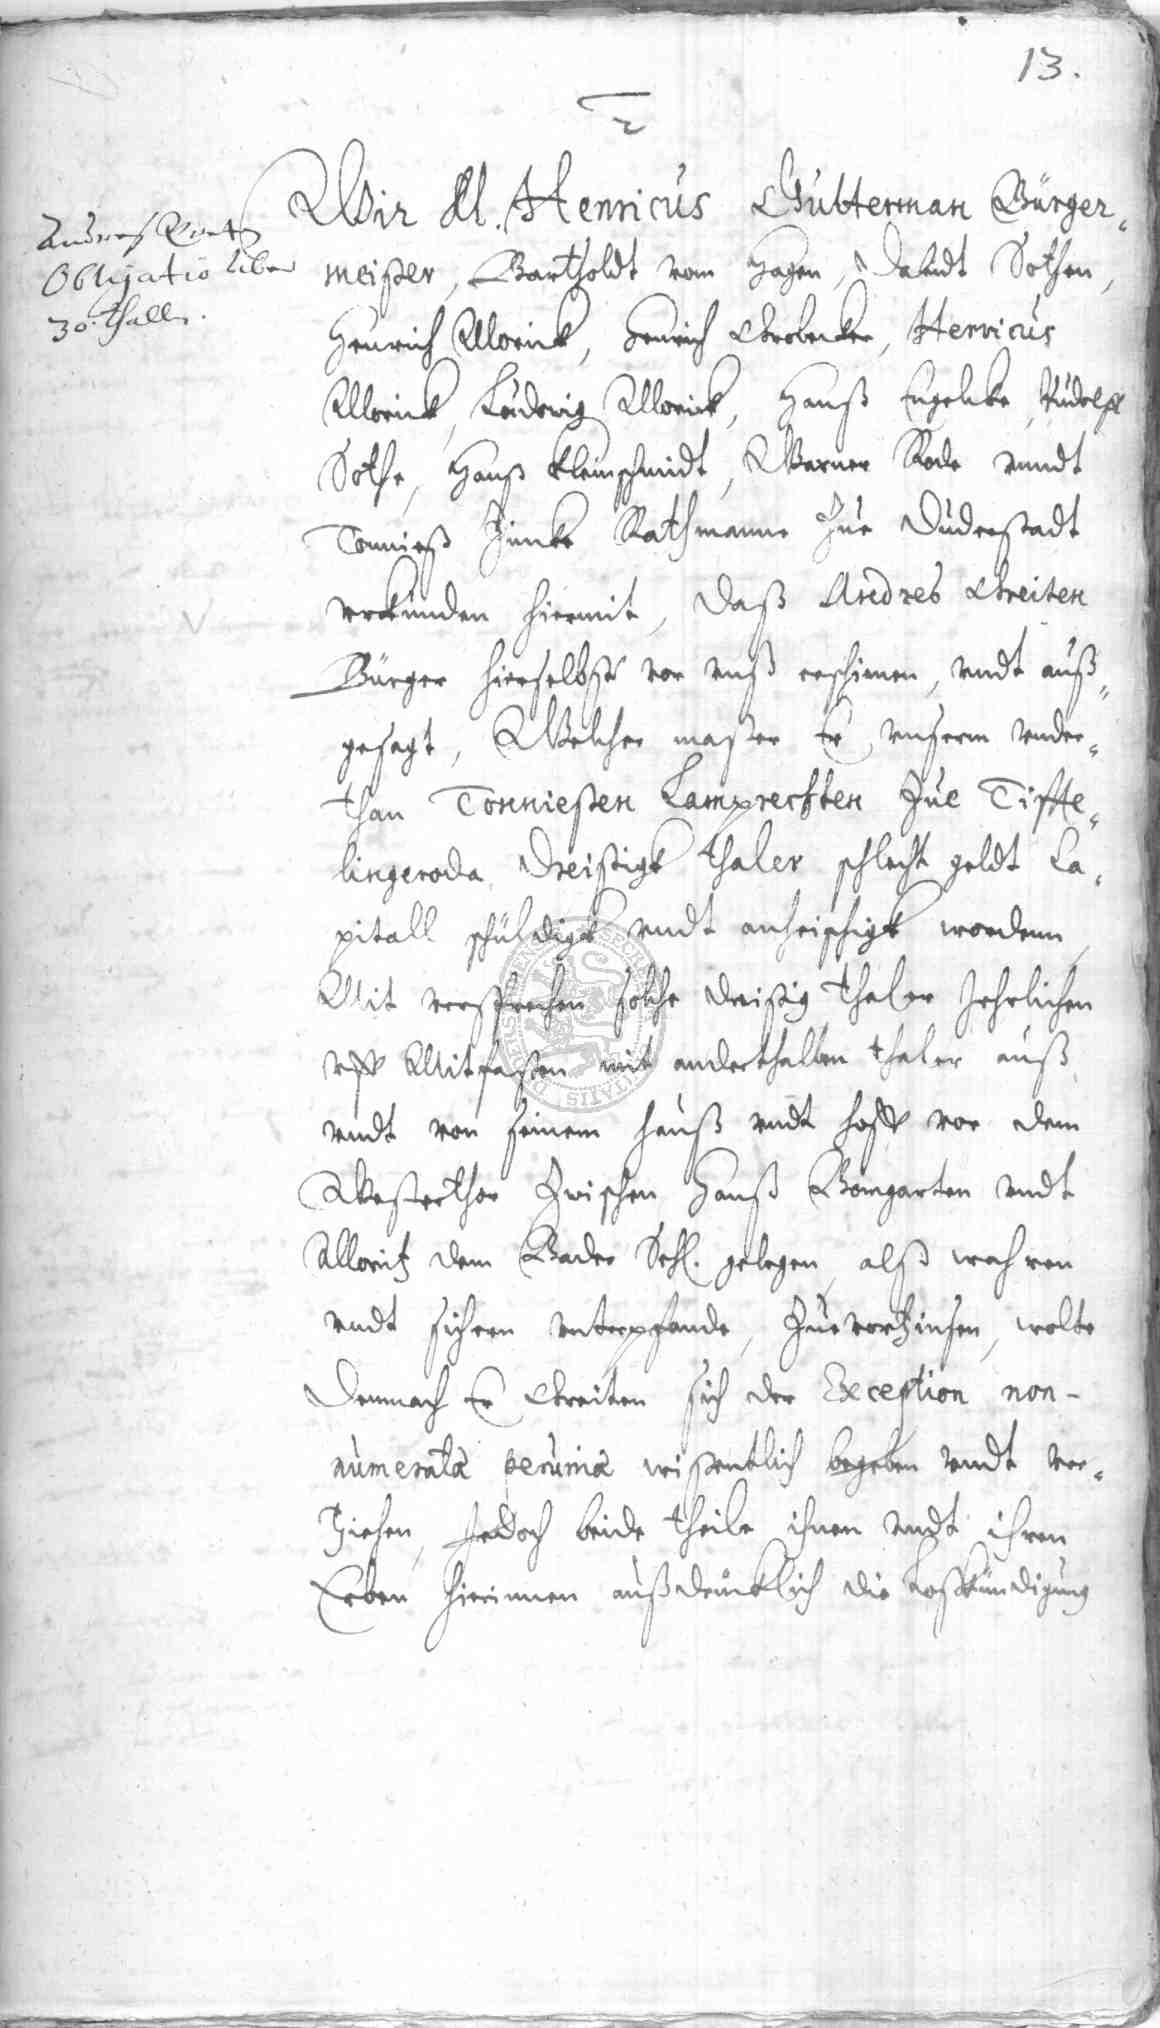 13.
Andreas
Obligatio über
30. thaller.
Wir M. Henricus Gutterman Bürger-
meister, Bartholdt vom Hagen, Dauidt Sothen,
Henrich Morick, Henrich Strobecker, Henricus
Morick, Ludewig Morick, Hanß Engelcke, Rudolff
Sothe, Hanß Kleinschmidt, Warner Rode vnndt
Tonnieß Jincke Rathmanne Zue Duderstadt
vrkunden hiermit, daß Andres Streiten
Bürger hierselbst vor vnß erschienen, vndt auß-
gesagt, Welcher maßen Er, vnserm vnder-
than Tonnießen Lamprechten Zue Tiffte-
lingeroda, Dreißigk thaler schlecht geldt Ca-
pitall schüldigk vndt anheischigk wordenn,
Mit versprechen solche dreißig thaler Jehrlichen
vff Mitfasten mit anderthalben thaler auß
vndt von seinem hauß vndt hoff vor dem
Westerthor Zwischen Hanß Bomgarten vndt
Moritz dem Bader Sehl. gelegen, alß wahren
vndt sichern vnterpfande, Zueuorzinsen, wolte
Demnach Er Streiten sich der Exception non-
numerata pecunia wissentlich begeben vndt ver-
Ziehen, Jedoch beide theile ihnen vndt ihren
Erben hierinnen außdrücklich die Loßkündigung
DUDERSTADENSIS